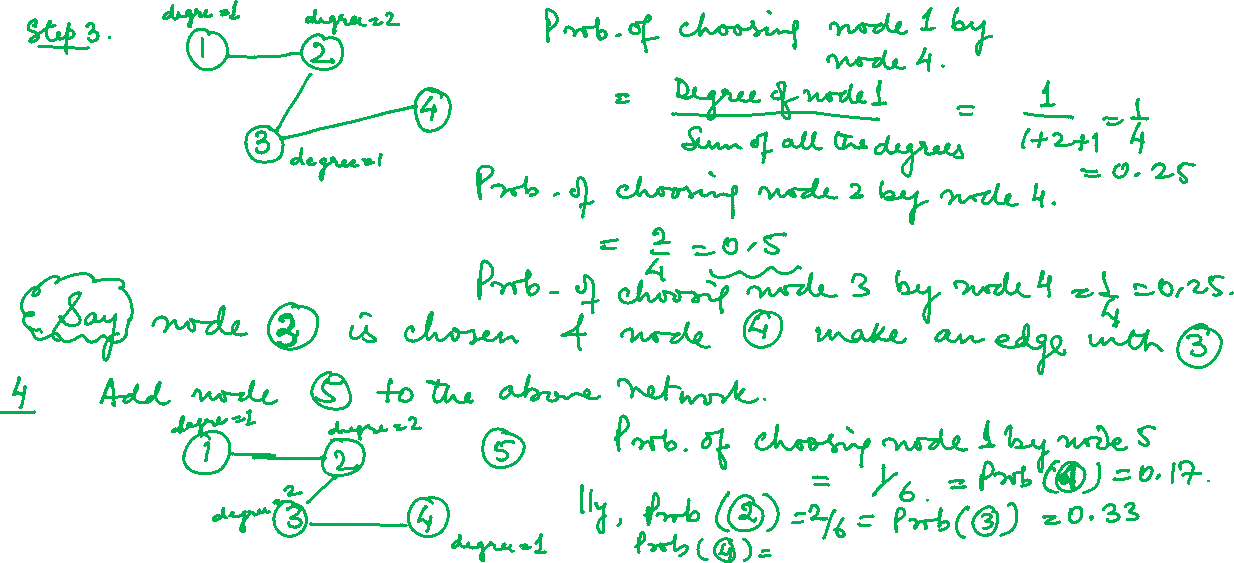 Step 3.
degree=1
degree=2
1
2
3
4
degree=1
Prob. of choosing node 1 by
node 4.
= Degree of node 1 / Sum of all the degrees = 1 / 1+2+1 = 1/4
= 0.25
Prob. of choosing node 2 by node 4.
= 2/4 = 0.5
Prob. of choosing node 3 by node 4 = 1/4 = 0.25.
Say node 3 is chosen & node 4 make an edge with 3
4 Add node 5 to the above network.
degree=1
degree=2
1
2
5
degree=2
3
4
degree=1
Prob. of choosing node 1 by node 5
= 1/6. = Prob(4) = 0.17.
lly, Prob(2) = 2/6 = Prob(3) = 0.33
Prob(4) =